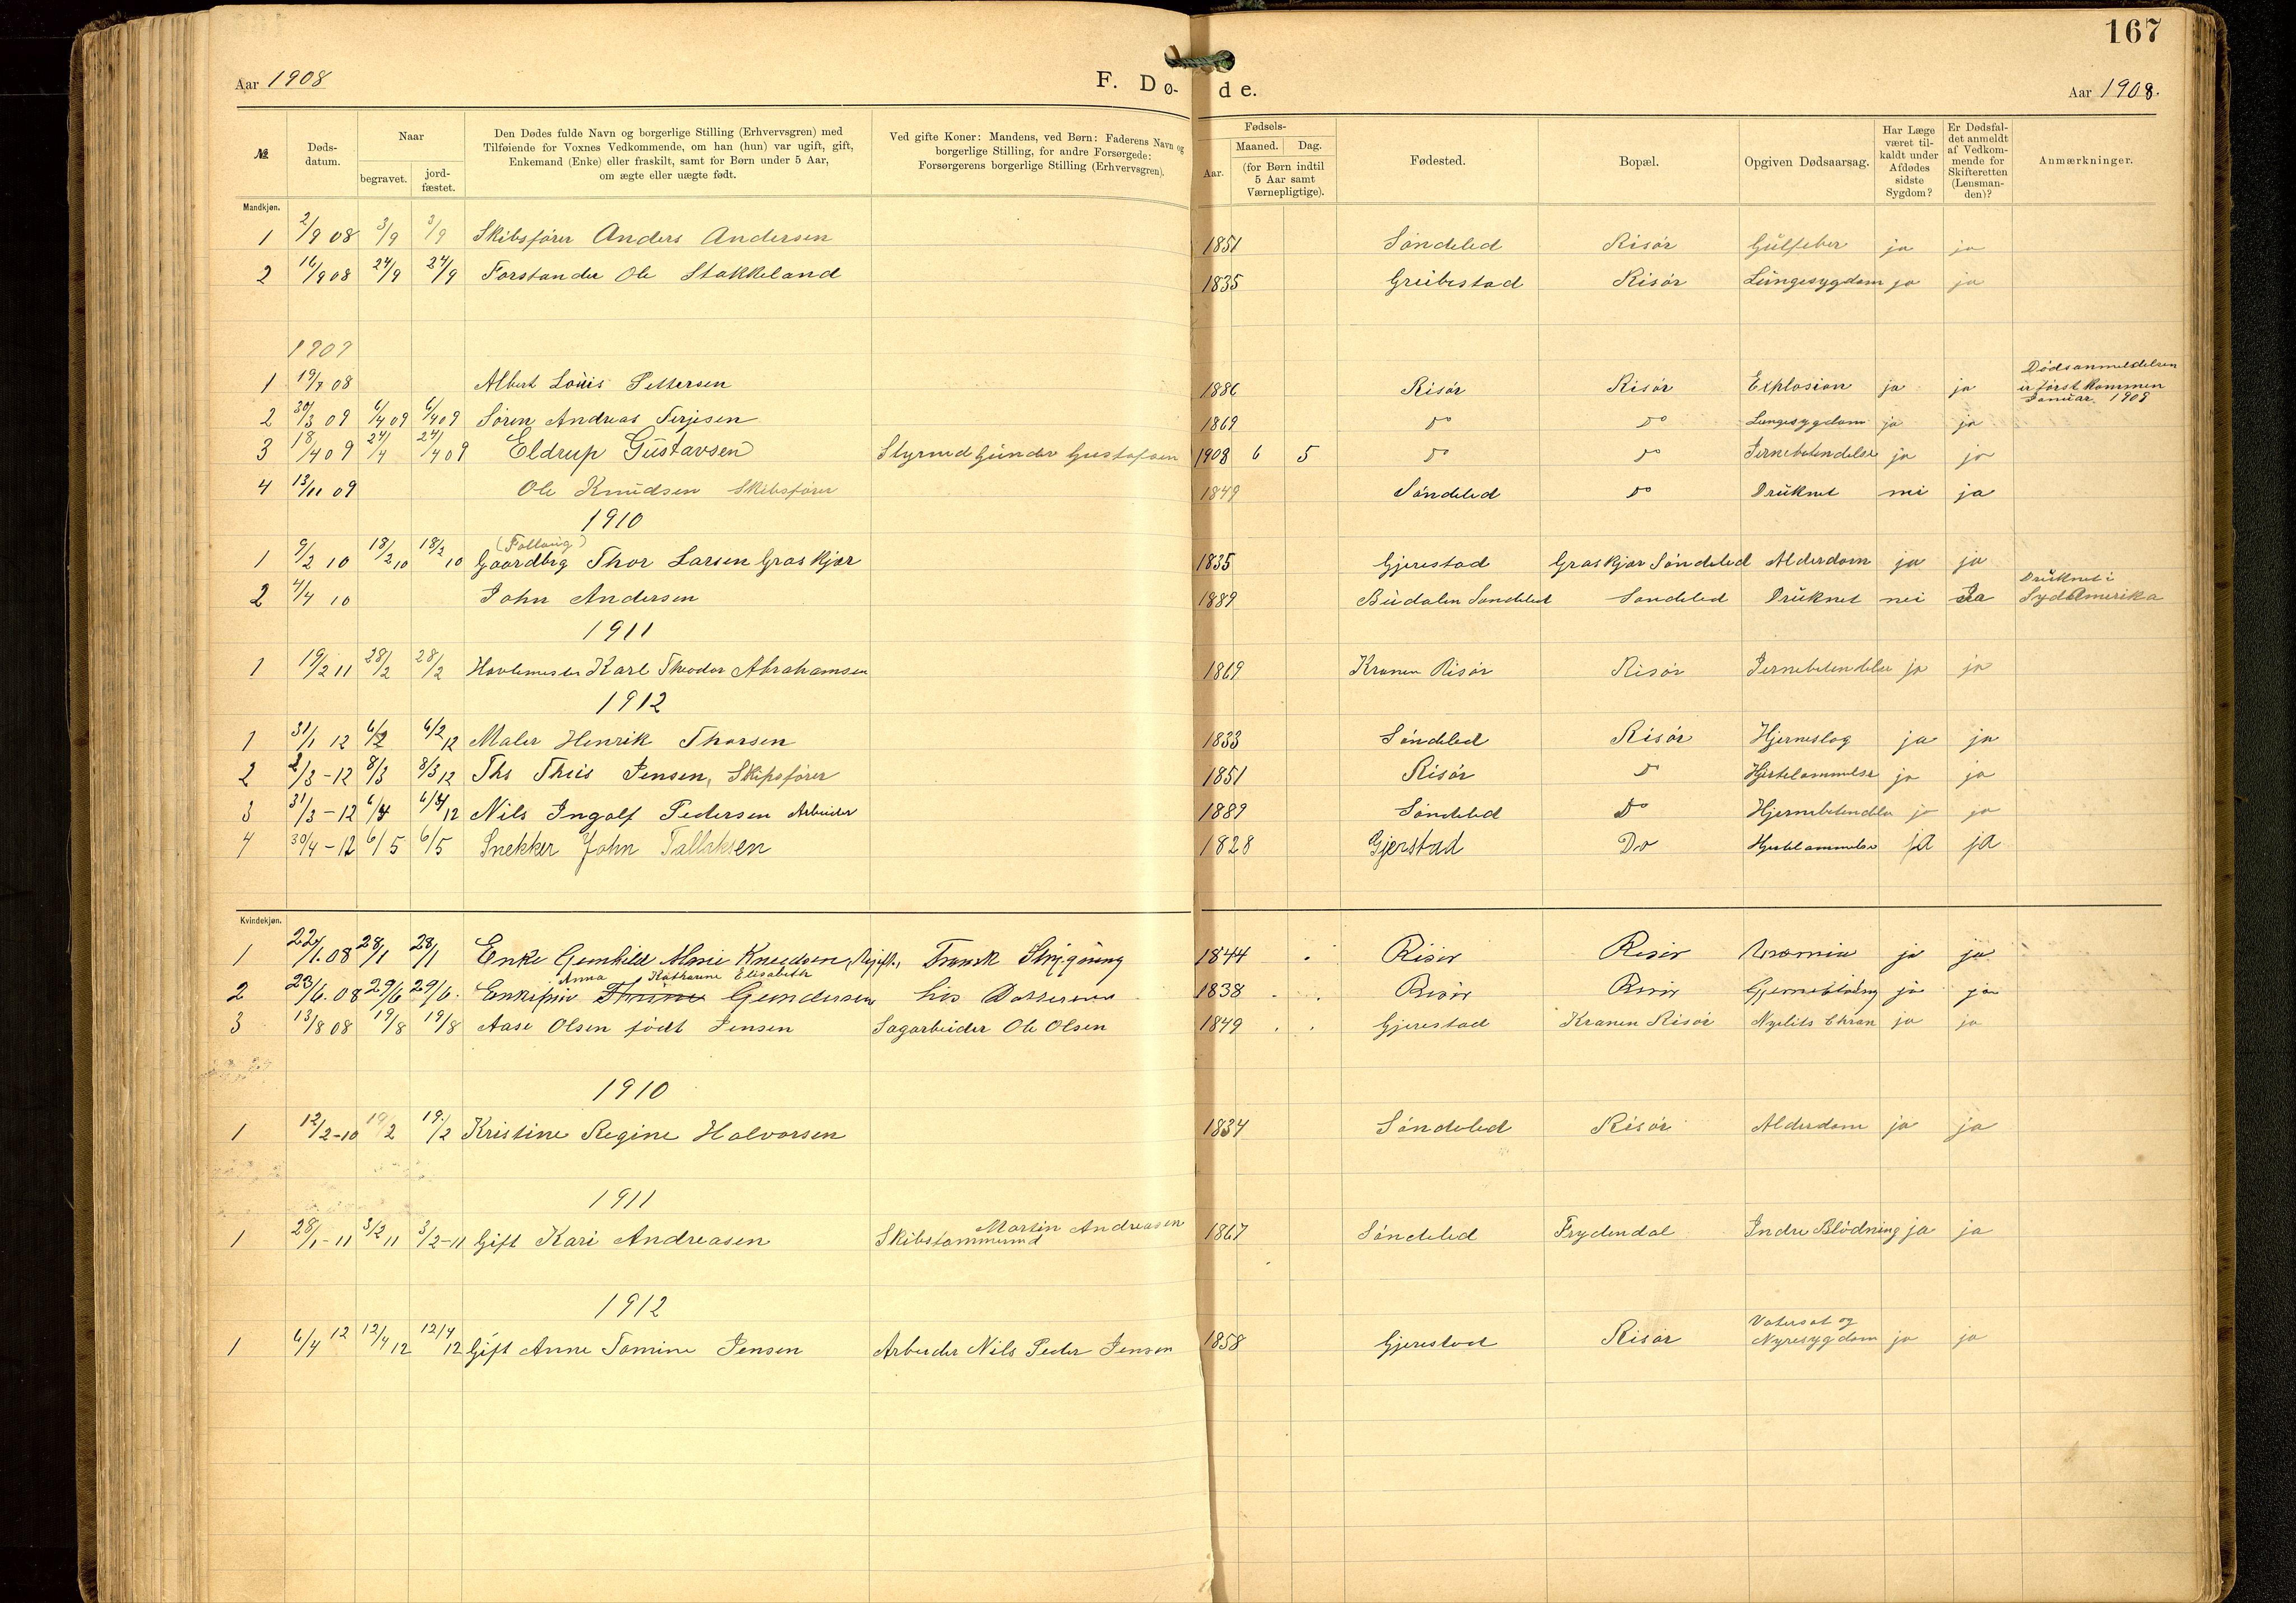 167
Aar 1908
F. Dø-
de.
Aar 1908.
№ Døds-datum. Naar begravet. jord-fæstet. Den Dødes fulde Navn og borgerlige Stilling (Erhvervsgren) med Tilføiende for Voxnes Vedkommende, om han (hun) var ugift, gift, Enkemand (Enke) eller fraskilt, samt for Børn under 5 Aar, om ægte eller uægte født. Ved gifte Koner: Mandens, ved Børn: Faderens Navn og borgerlige Stilling, for andre Forsørgede: Forsørgerens borgerlige Stilling (Erhvervsgren). Fødsels- Aar. Maaned. Dag. (for Børn indtil 5 Aar samt Værnepligtige). Fødested. Bopæl. Opgiven Dødsaarsag. Har Læge været til-kaldt under Afdødes sidste Sygdom? Er Dødsfal-det anmeldt af Vedkom-mende for Skifteretten (Lensman-den)? Anmærkninger.
Mandkjøn.
1 2/9 08 3/9 3/9 Skibsfører Anders Andersen 1851 Søndeled Risør Gulfeber ja ja
2 16/9 08 24/9 24/9 Forstander Ole Stakkeland 1835 Greibestad Risør Lungesygdom ja ja
1909
1 19/7 08 Albert Louis Pettersen 1886 Risør Risør Explosion ja ja Dødsanmeldelsen er først kommen Januar 1909
2 30/3 09 6/4 09 6/4 09 Søren Andreas Terjesen 1869 do do Lungesygdom ja ja
3 18/4 09 24/4 24/4 09 Eldrup Gustavsen Styrmd Gunder Gustafsen 1908 6 5 do do Jernebetendelse ja ja
4 13/11 09 Ole Knudsen Skibsfører 1849 Søndeled do Druknet nei ja
1910
1 9/2 10 18/2 10 18/2 10 (Follaug) Gaardbrg Thor Larsen Graskjær 1835 Gjerestad Graskjær Søndeled Alderdom ja ja
2 4/4 10 John Andersen 1889 Budalen Søndeled Søndeled Druknet nei Ja Druknet i Syd Amerika
1911
1 19/2 11 28/2 28/2 Hovlemester Karl Theodor Abrahamsen 1869 Kranen Risør Risør Jernebetendelse ja ja
1912
1 31/1 12 6/2 6/2 12 Maler Henrik Thorsen 1833 Søndeled Risør Hjerneslag ja ja
2 2/3-12 8/3 8/3 12 Ths Theis Jensen, Skipsfører 1851 Risør do Hjertelammelse ja ja
3 31/3-12 6/4 6/4 12 Nils Ingolf Pedersen Arbeider 1889 Søndeled Do Hjernebetendelse ja ja
4 30/4-12 6/5 6/5 Snekker John Tallaksen 1828 Gjerstad Do Hjertelammelse ja ja
Kvindekjøn.
1 22/1.08 28/1 28/1 Enke Gunhild Marie Knudsen, 1844 Risør Risør ja ja
2 23/6.08 29/6 29/6. Anna Kathrine Elisabeth Gundersen hos Datteren 1838 Risør Risør ja ja
3 13/8 08 19/8 19/8 Aase Olsen født Jensen Sagarbeider Ole Olsen 1849 Gjerestad Kranen Risør ja ja
1910
1 12/2-10 19/2 19/2 Kristine Regine Halvorsen 1834 Søndeled Risør Alderdom ja ja
1911
1 28/1-11 3/2 11 3/2-11 Gift Kari Andreasen Skibstømmermd Martin Andreasen 1867 Søndeled Frydendal Indre Blødning ja ja
1912
1 6/4 12 12/4 12 12/4 12 Gift Anne Tomine Jensen Arbeider Nils Peder Jensen 1858 Gjerestad Risør Vatersot og Nyresygdom ja ja